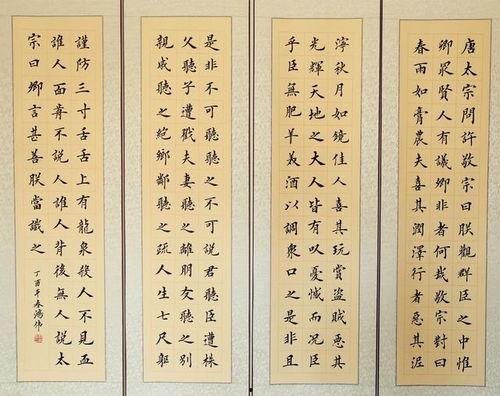 唐太宗問許敬宗曰朕觀群臣之中惟
卿最賢人有議卿非者何哉敬宗對曰
春雨如膏農夫喜其潤澤行者惡其泥
濘秋月如鏡佳人喜其玩賞盜賊惡其
光輝天地之大人皆有以憂憾而況臣
乎臣無肥羊美酒以調衆口之是非且
是非不可聽聽之不可說君聽臣遭株
父聽子遭戮夫妻聽之離朋友聽之别
親戚聽之絕鄉鄰聽之疏人生七尺軀
謹防三寸舌舌上有龍泉殺人不見血
誰人面前不說人誰人背後無人說太
宗曰卿言甚善朕當識之
丁酉年春鴻偉